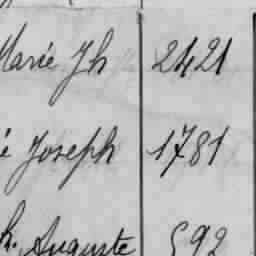 Marie Jh 2421
é Joseph 1781
h. Auguste 592